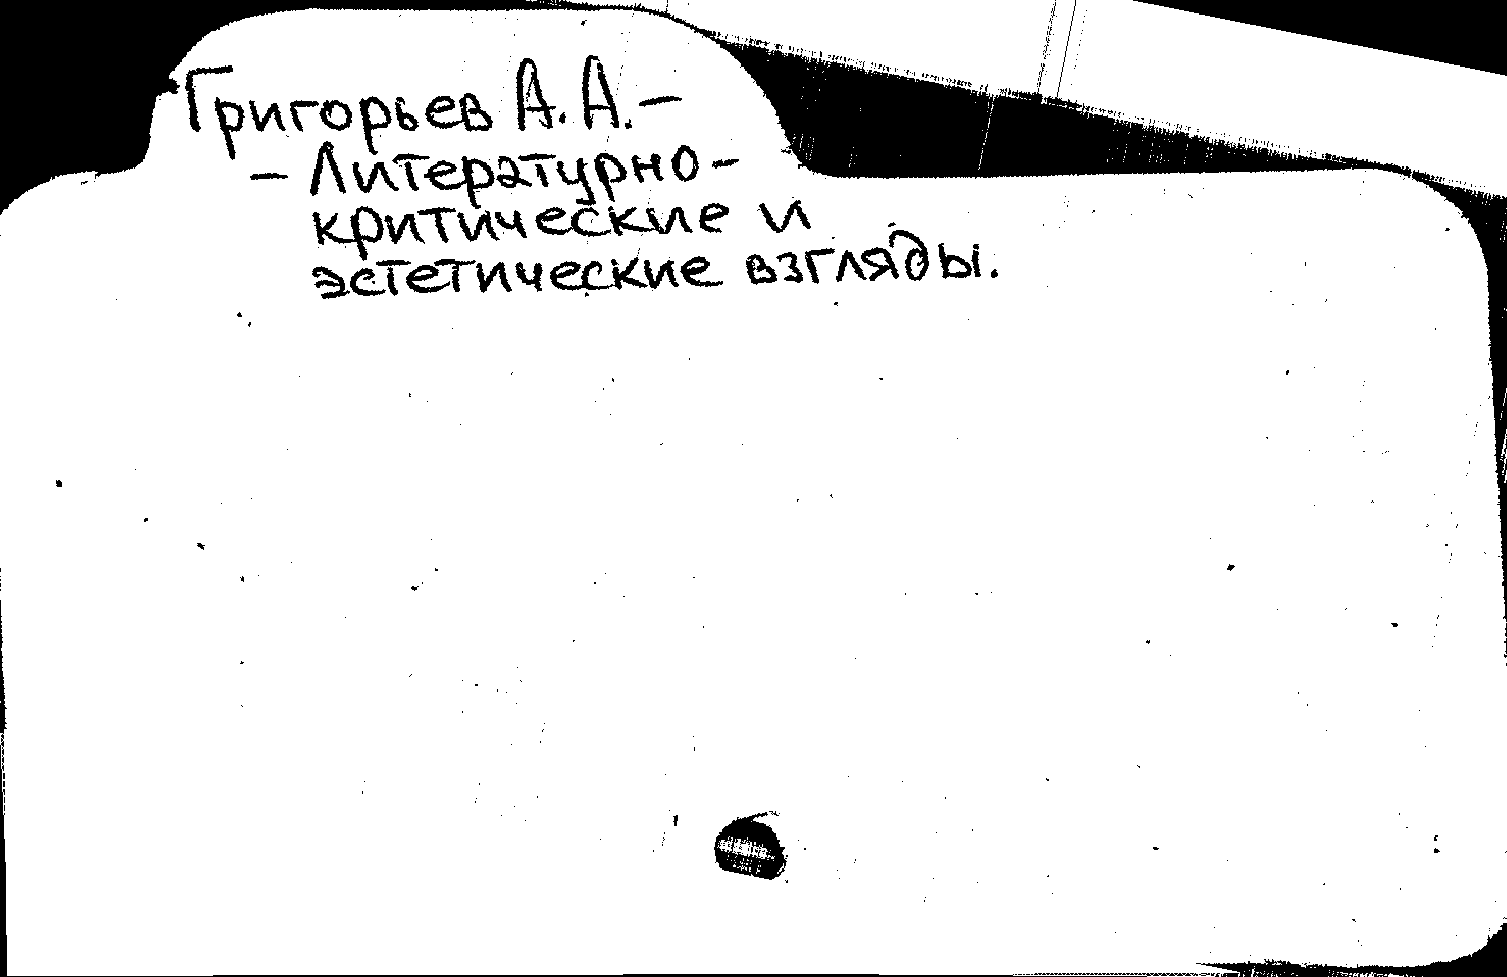 Григорьев А. А. –
– Литературно-
критические и
эстетические взгляды.